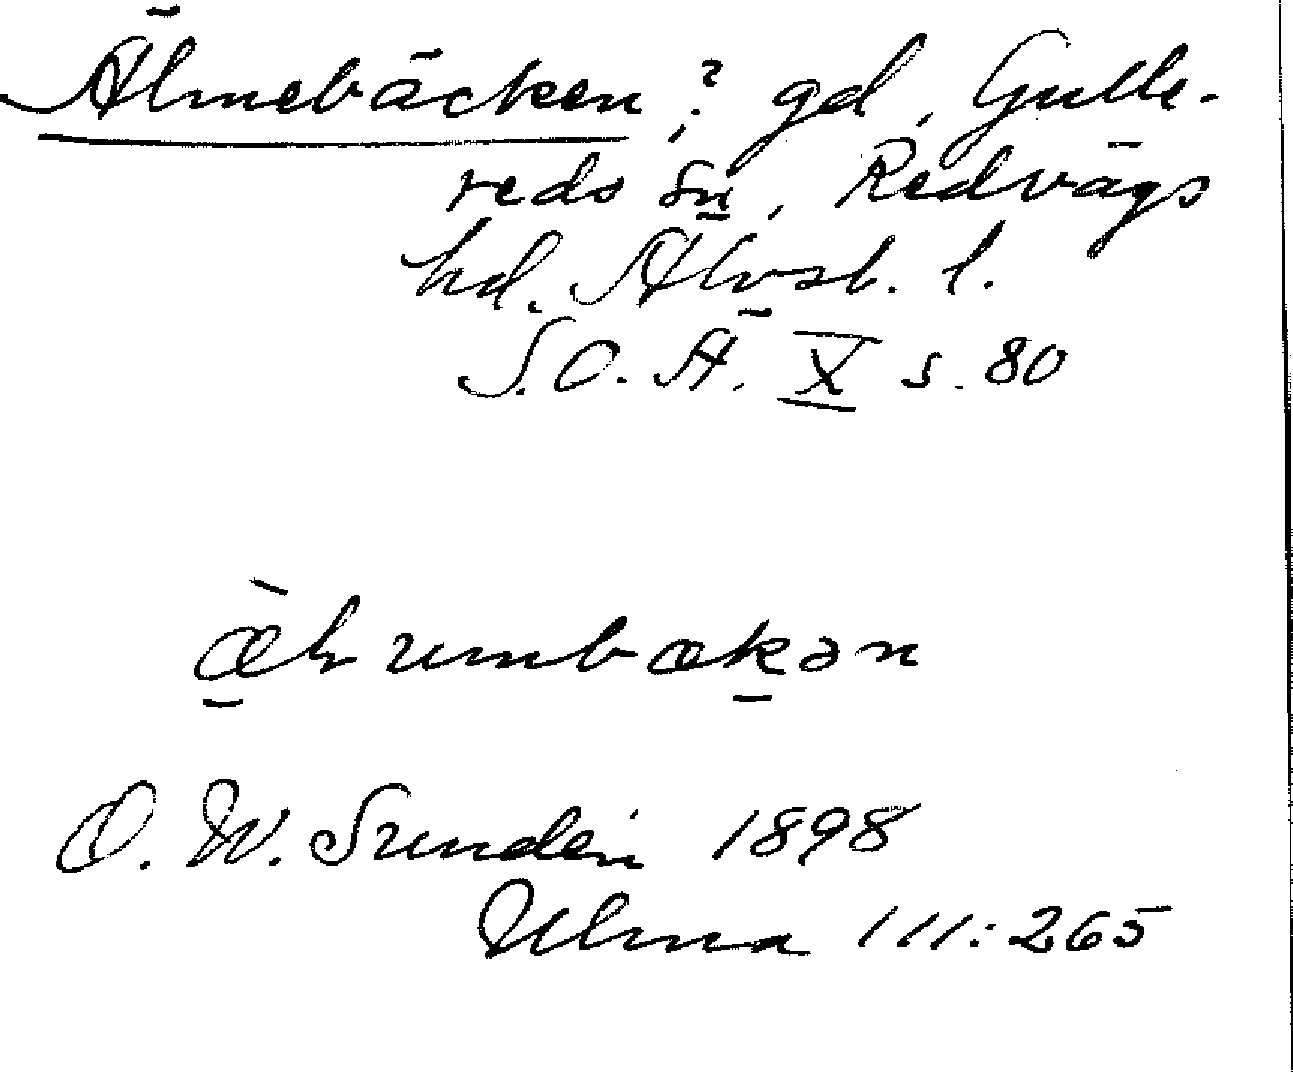 Älmebäcken,? gd, Gulle-
reds sn, Redvägs
hd. Älvsb. l.
S.O.Ä. X s. 80
O. W. Sundén 1898
Ulma 111:265